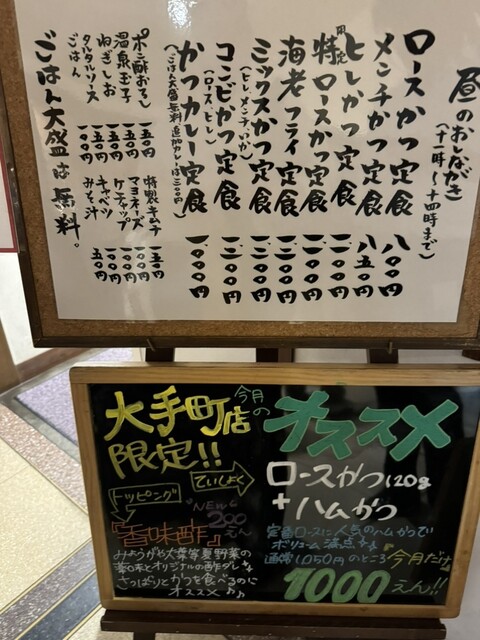 昼のおしながき
(十一時〜十四時まで)
ロースかつ定食 八〇〇円
メンチかつ定食 八五〇円
ヒレかつ定食 一一〇〇円
限定 特ロースかつ定食 一一〇〇円
海老フライ定食 一二〇〇円
ミックスかつ定食 一二〇〇円
(ヒレ、メンチ、いか)
コンビかつ定食 一二〇〇円
(ロース、ヒレ)
かつカレー定食 一一〇〇円
(ごはん大盛無料 追加カレーは三〇〇円)
ポン酢おろし 一五〇円
温泉玉子 一〇〇円
ねぎしお 一五〇円
タルタルソース 一〇〇円
ごはん 一五〇円
特製キムチ 一五〇円
マヨネーズ
ケチャップ
キャベツ 一〇〇円
みそ汁 五〇円
ごはん大盛は無料。
大手町店
限定!!
今月の
オススメ
ていしょく
ロースかつ120g
+ハムかつ
定番ロースに人気のハムかつでい
ボリューム満点
通常1,050円のところ今月だけ
1000えん!!
トッピング
NEW
200えん
『香味酢』
みょうがや大葉等夏野菜の
薬味とオリジナルの酢ダレ
さっぱりとかつを食べるのに
オススメ♪